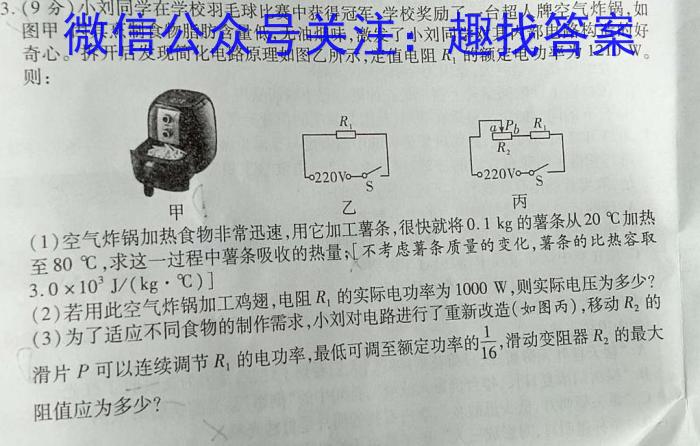 3. (9 分) 小刘同学在学校羽毛球比赛中获得冠军,学校奖励了一台超人牌空气炸锅,如
图甲
微信公众号关注：趣找答案
奇心。拆开后发现简化电路原理如图乙所示,定值电阻 R₁ 的额定电功率为 W。
则:
R₁
220V
S
a P b R₁
R₂
220V
S
甲
乙
丙
(1)空气炸锅加热食物非常迅速,用它加工薯条,很快就将0.1 kg的薯条从20 ℃加热
至 80 ℃,求这一过程中薯条吸收的热量;[不考虑薯条质量的变化,薯条的比热容取
3.0×10³ J/(kg·℃)]
(2)若用此空气炸锅加工鸡翅,电阻 R₁ 的实际电功率为 1000 W,则实际电压为多少?
(3)为了适应不同食物的制作需求,小刘对电路进行了重新改造(如图丙),移动 R₂ 的
滑片 P 可以连续调节 R₁ 的电功率,最低可调至额定功率的1/16,滑动变阻器 R₂ 的最大
阻值应为多少?